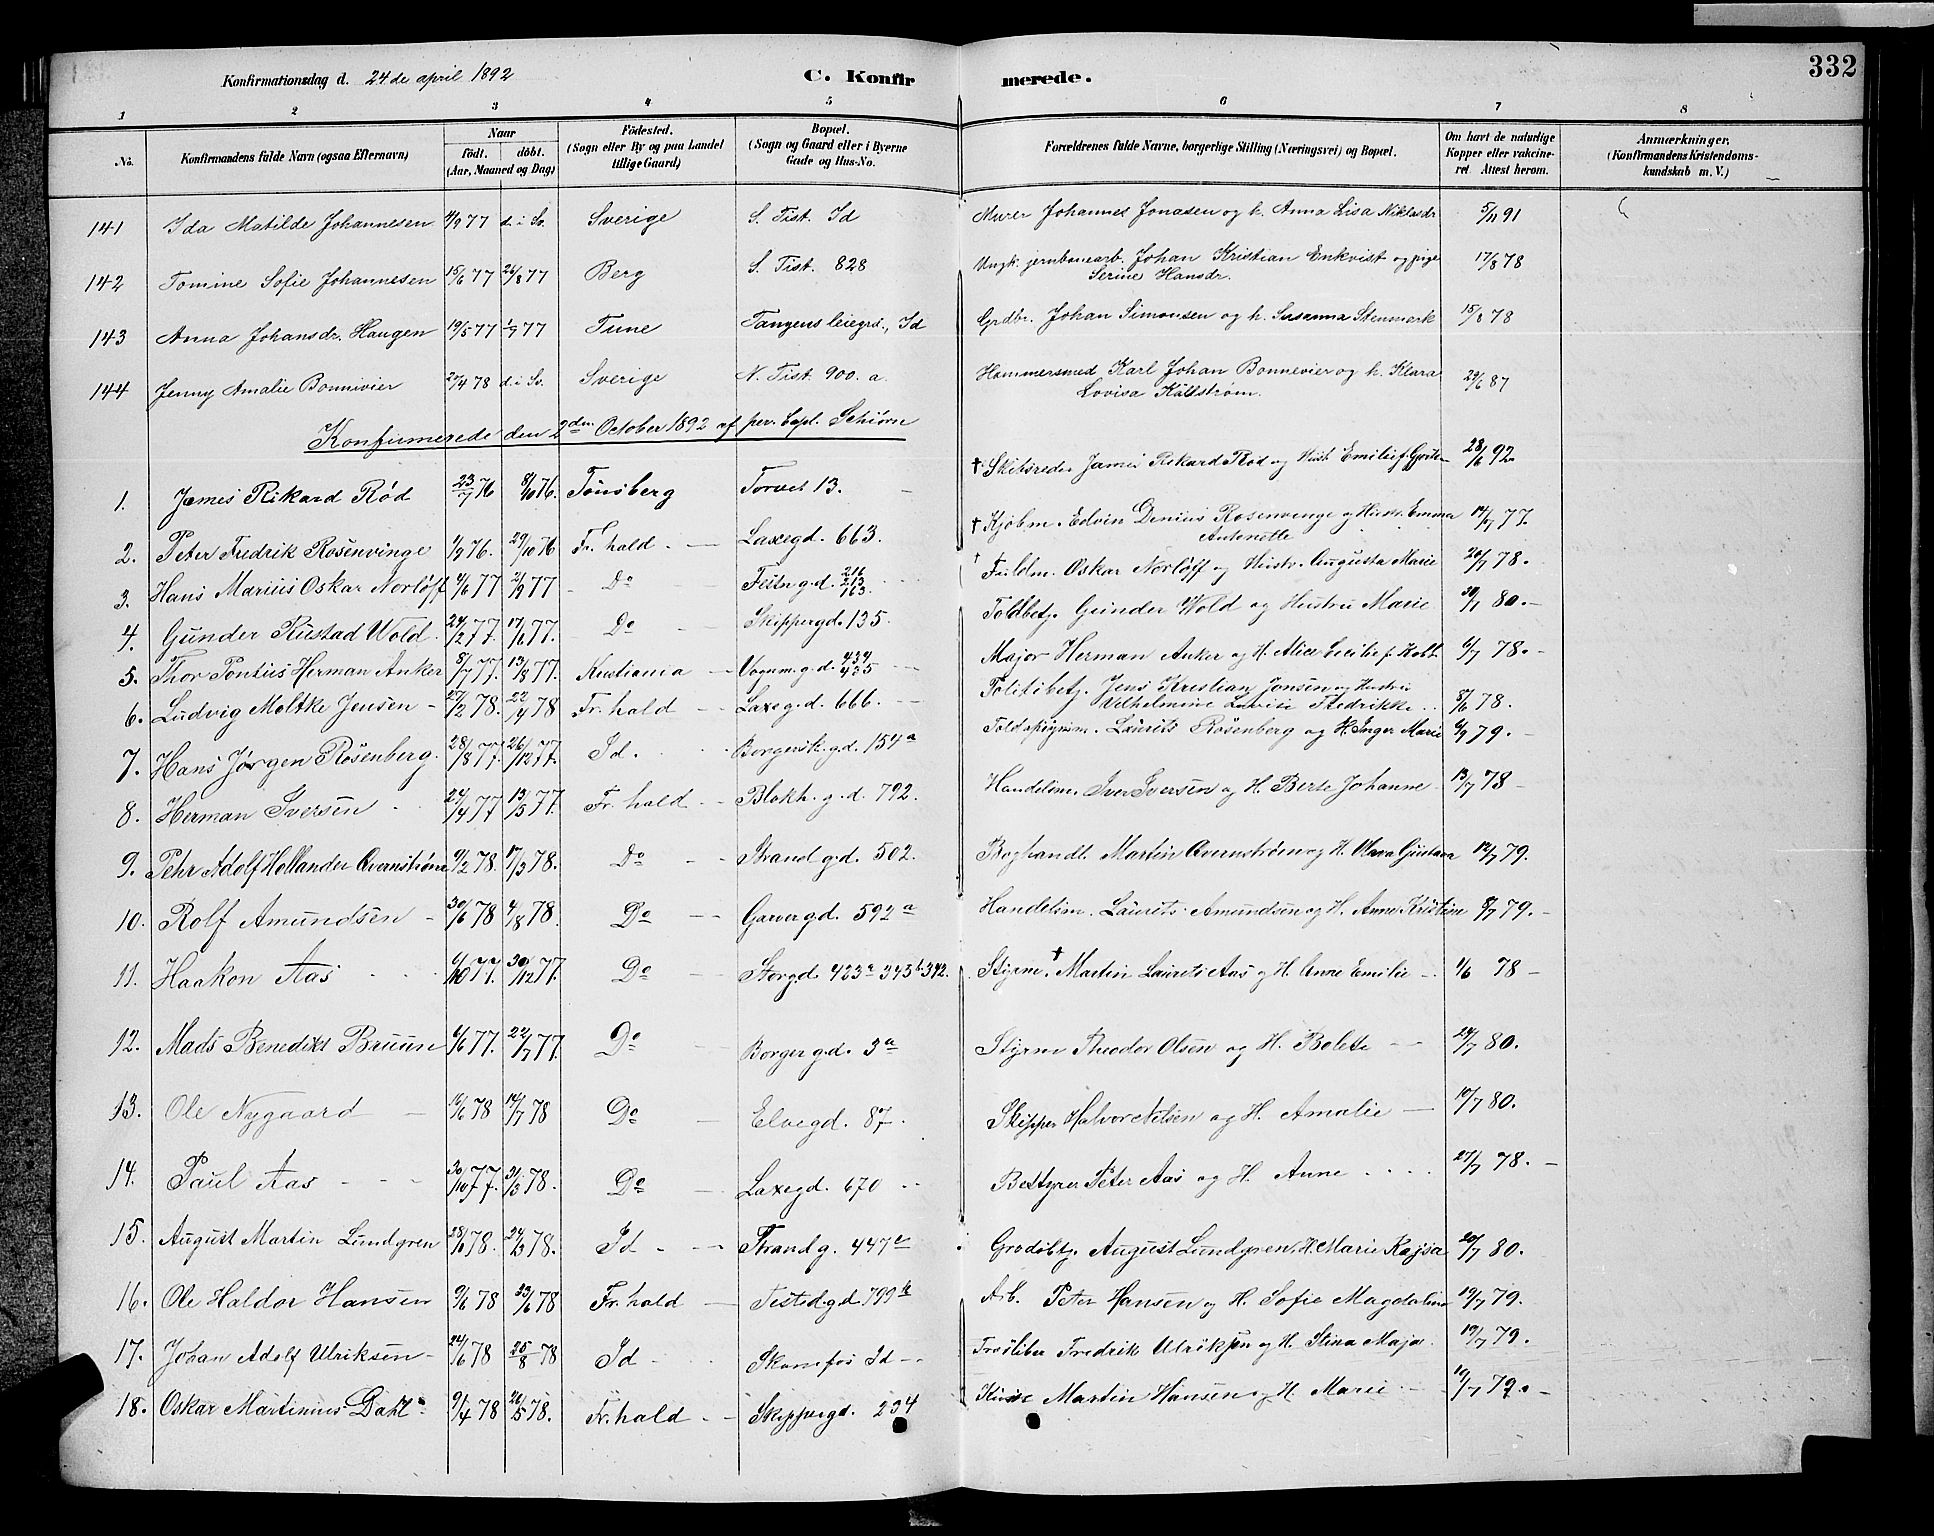 332
Konfirmationsdag d. 24de april 1892 C. Konfirmerede.
1 2 3 4 5 6 7 8
No. Konfirmandens fulde Navn (ogsaa Efternavn) Naar født. døbt. (Aar, Maaned og Dag) Fødested. (Sogn eller By og paa Landet tillige Gaard) Bopæl. (Sogn og Gaard eller i Byerne Gade og Hus-No. Forældrenes fulde Navne, borgerlige Stilling (Næringsvei) og Bopæl. Om havt de naturlige Kopper eller vakcineret. Attest herom. Anmærkninger. (Konfirmandens Kristendomskundskab m. V.)
141 Ida Matilde Johannesen 4/9 77 d. i Sv. Sverige S. Tist. Id Murer Johannes Jonasen og h. Anna Lisa Niklasdr 5/11 91
142 Tomine Sofie Johannesen 15/6 77 26/8 77 Berg S. Tist. 828 Ungk. jernbanearb. Johan Kristian Enkvist og pige
Serine Hansdr. 17/8 78
143 Anna Johansdr. Haugen 19/5 77 1/7 77 Tune Tangens leiegrd., Id Grdbr. Johan Simonsen og h. Susanna Stenmark 15/8 78
144 Jenny Amalie Bonnivier 20/4 78 d. i Sv. Sverige N. Tist. 900. a. Hammersmed Karl Johan Bonnevier og h. Klara
Lovisa Källstrøm. 29/6 87
Konfirmerede den 2den October 1892 af per. Capl. Schiørn
1. James Rikard Rød 23/7 76 8/10 76. Tønsberg Torvet 13. † Skibsreder James Rikard Rød og Hust. Emilie f. 28/6 92
2. Peter Fredrik Rosenvinge 1/9 76. 29/10 76 Fr. hald Laxegd. 663. † Kjøbm. Edvin Denius Rosenvinge og Hustr. Emma
Antonette 14/7 77.
3. Hans Marius Oskar Norløff 4/6 77 2/9 77 Do Festn.g.d. 216 213 163. † Oskar Norløff og Hustr. Augusta Marie 20/7 78.
4. Gunder Rustad Wold. 24/2 77. 17/6 77. Do Skippergd. 135. Toldbetj. Gunder Wold og Hustru Marie 30/1 80.
5. Thor Pontus Herman Anker 8/7 77. 13/8 77. Kristiania Vognm.g.d. 434 435 Major Herman Anker og H. Alice Cecilie f. 6/7 78.
6. Ludvig Moltke Jensen 27/2 78. 22/4 78 Fr. hald Laxeg.d. 666. Politibetj. Jens Kristian Jensen og Hustru
Vilhelmine Lovise Fredrikke 8/6 78.
7. Hans Jørgen Rosenberg. 28/8 77. 26/12 77. Id. Borgersk.g.d. 154a Laurits Rosenberg og H. Inger Marie 6/9 79.
8. Herman Iversen 24/4 77 13/5 77. Fr. hald Blokh.g.d. 792. Handelsm. Iver Iversen og H. Berte Johanne 13/7 78
9. Pehr Adolf Hollander Qvarnstrøm 9/2 78. 17/3 78. Do Strandg.d. 502. Boghandl. Martin Qvarnstrøm og H. Gustava 12/7 79.
10. Rolf Amundsen 30/6 78 4/8 78. Do Garvergd. 592a Handelsm. Laurits Amundsen og H. Anne Kristine 8/7 79.
11. Haakon Aas 6/10 77. 30/12 77. Do Storgd. 423a 343b 342. Styrm. † Martin Laurits Aas og H. Anne Emilie 1/6 78
12. Mads Benedikt Bruun 6/6 77. 22/7 77. Do Borgerg.d. 3a Styrm Theodor Olsen og H. Bolette 24/7 80.
13. Ole Nygaard 16/6 78 14/7 78 Do Elvegd. 87. Skipper Halvor Nilsen og H. Amalie 10/7 80.
14. Paul Aas 30/10 77. 31/3 78. Do Laxegd. 670 Bestyrer Peter Aas og H. Anne 27/7 78.
15. August Martin Lundgren 28/1 78. 24/3 78. Id Strandg. 447a August Lundgren, H. Marie Kajsa 20/7 80.
16. Ole Haldor Hansen 9/6 78 23/6 78 Fr. hald Tistedgd 799b Arb. Peter Hansen og H. Sofie Magdalina 19/7 79.
17. Johan Adolf Ulriksen 24/6 78 25/8 78 Id Skonefos Id Træsliber Fredrik Ulriksen og H. Stina Maja. 19/7 79.
18. Oskar Martinius Dahl 9/4 78 26/5 78. Fr. hald Skippergd. 234 Martin Hansen og H. Marie 10/7 79.